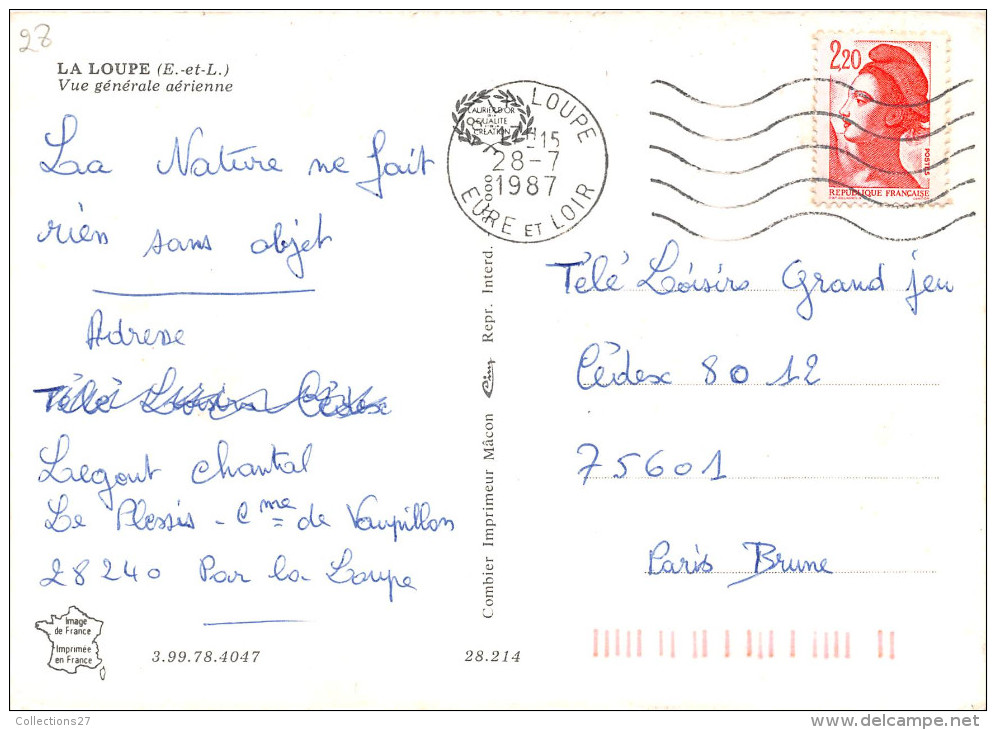 28
LA LOUPE (E.-et-L.)
Vue générale aérienne
Laa Nature ne fait
rien sans objet
Adresse
Télé Loisirs Cédex
Legout Chantal
Le Plessis - Cme de Vaupillon
28240 Par la Loupe
Image
de France
Imprimée
en France
3.99.78.4047
28.214
Combier Imprimeur Mâcon Repr. Interd.
LOUPE
LAURIER D'OR
QUALITE
CREATION
15
28-7
1987
EURE ET LOIR
2,20
POSTES
REPUBLIQUE FRANÇAISE
Télé Loisirs Grand jeu
Cédex 8012
75601
Paris Brune
Collections27
delcampe.net